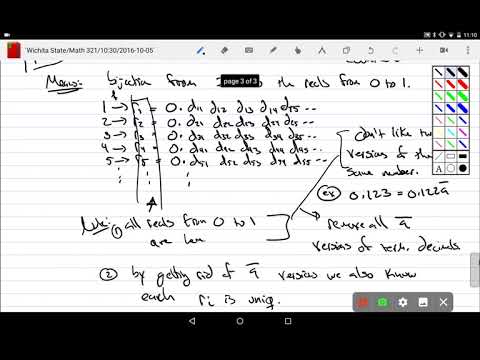 11:10
Wichita State/Math 321/10:30/2016-10-05
Means: bijection from to the reals from 0 to 1.
page 3 of 3
1 → r1 = 0. d11 d12 d13 d14 d15 ...
2 → r2 = 0. d21 d22 d23 d24 d25 ...
3 → r3 = 0. d31 d32 d33 d34 d35 ...
4 → r4 = 0. d41 d42 d43 d44 d45 ...
5 → r5 = 0. d51 d52 d53 d54 d55 ...
don't like two
versions of the
same number.
ex 0.123 = 0.1229̅
Note: ① all reals from 0 to 1
are here
remove all 9̅
versions of term. decimals
② by getting rid of 9̅ versions we also know
each ri is uniq.